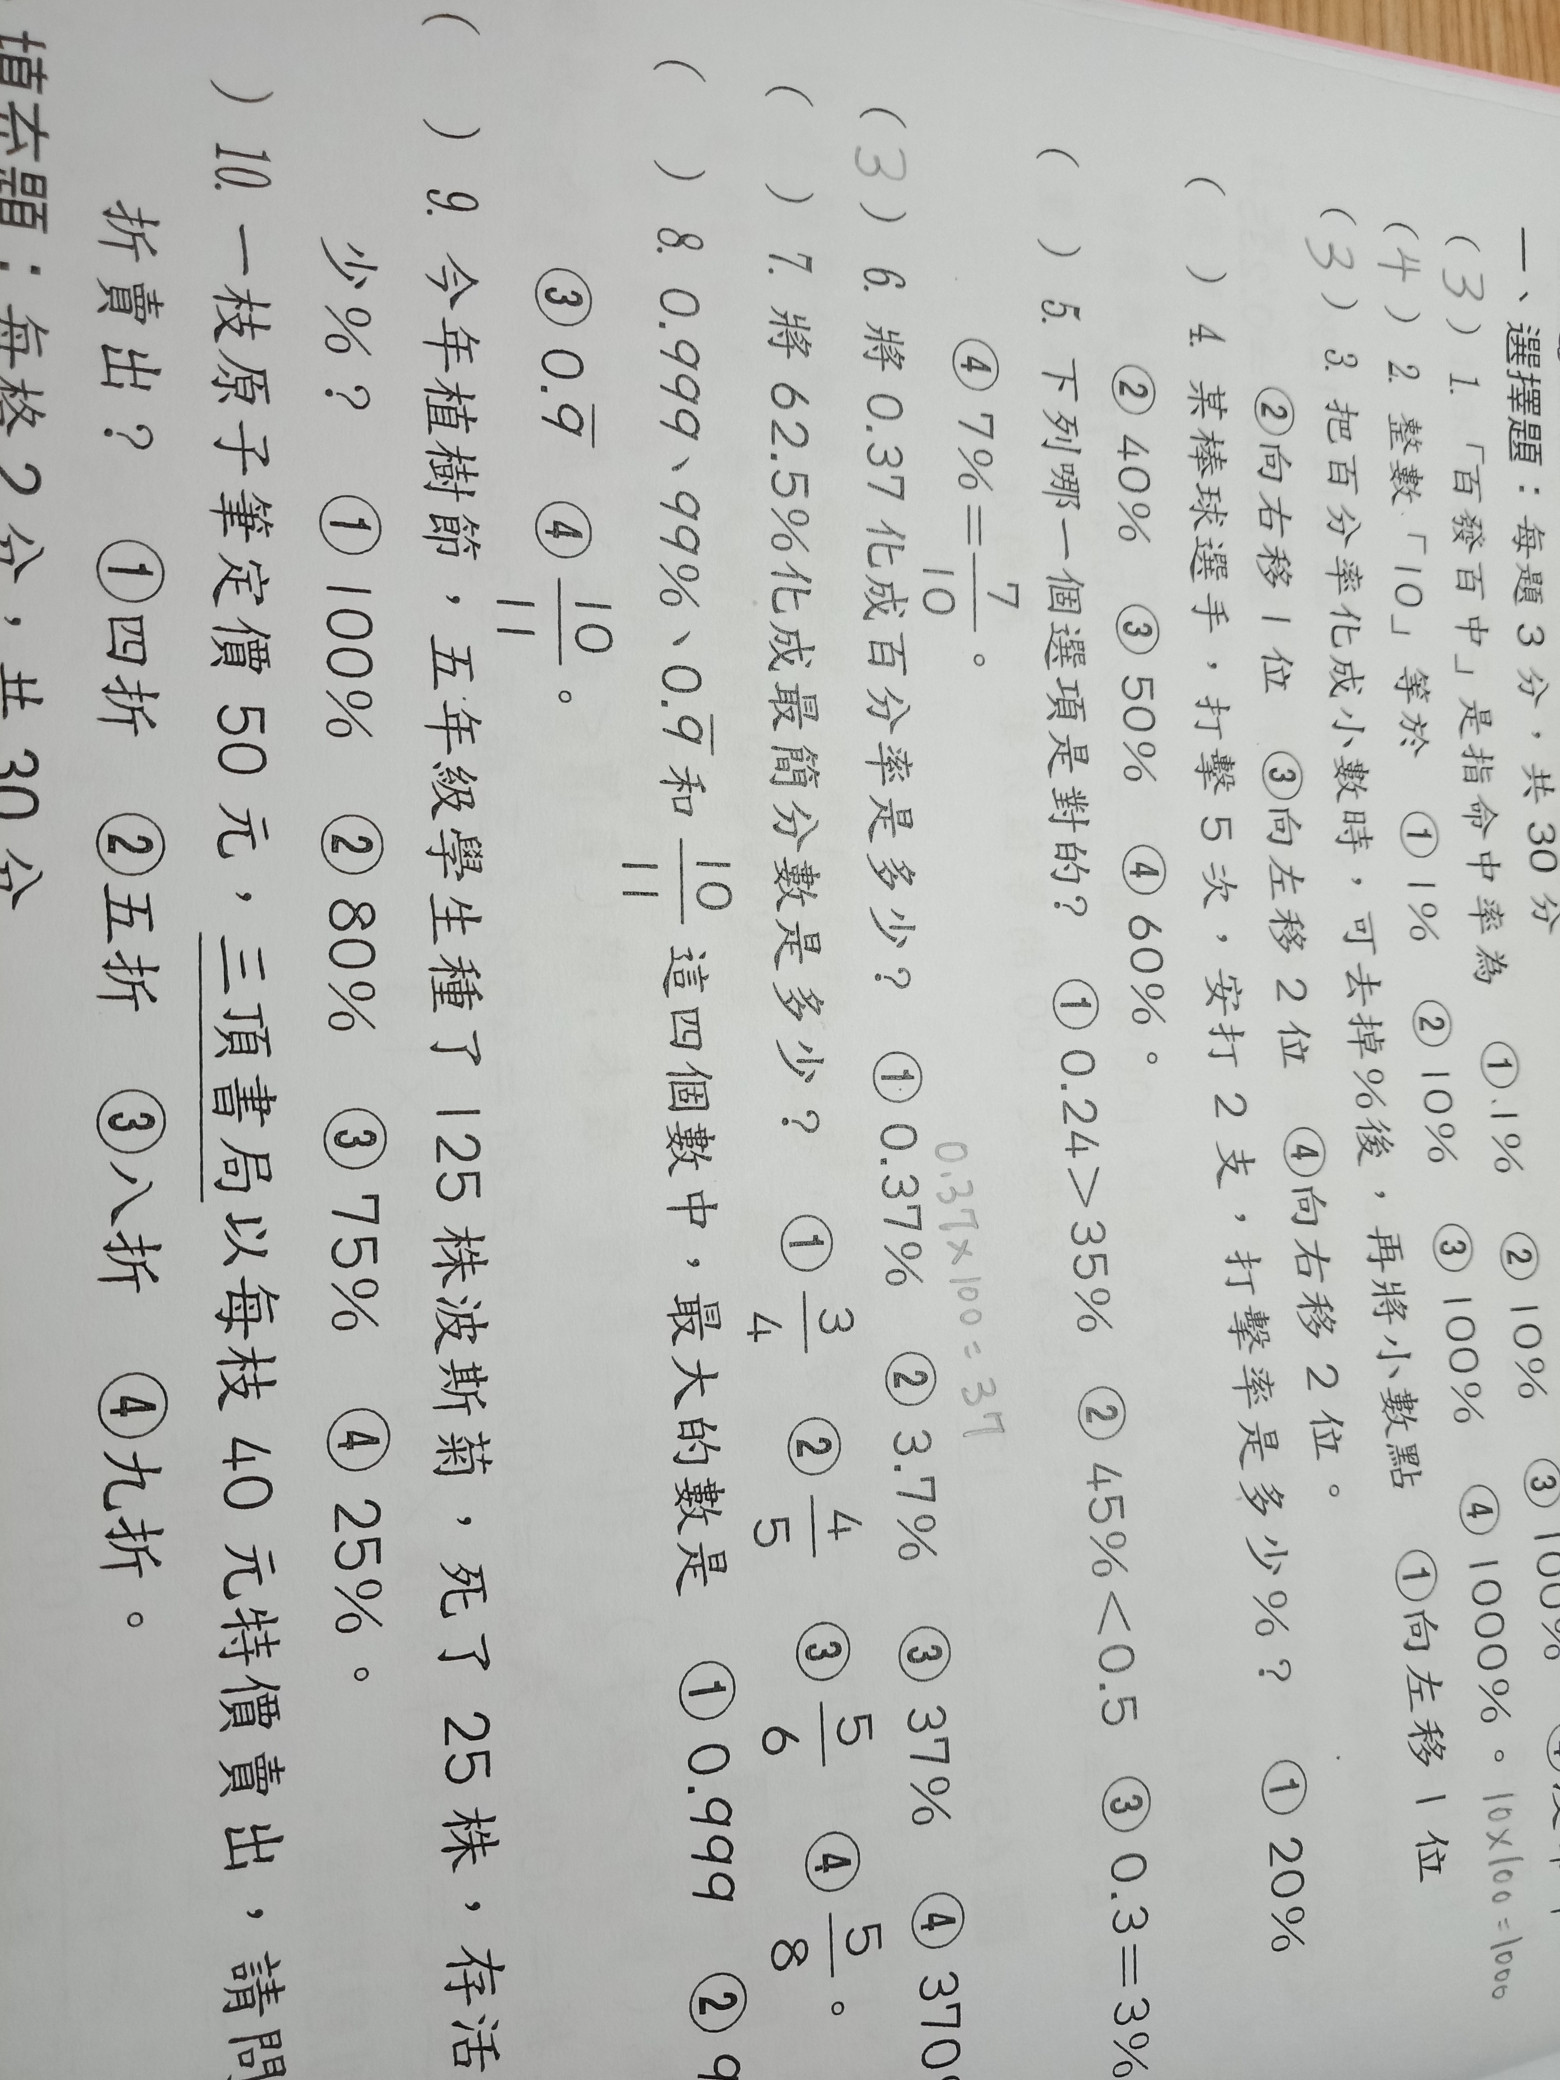 一、選擇題：每題3分，共30分
(3) 1. 「百發百中」是指命中率為 ①1% ②10% ③100%
(4) 2. 整數「10」等於 ①1% ②10% ③100% ④1000%。 10×100=1000
(3) 3. 把百分率化成小數時，可去掉%後，再將小數點 ①向左移1位
②向右移1位 ③向左移2位 ④向右移2位。
( ) 4. 某棒球選手，打擊5次，安打2支，打擊率是多少%？ ①20%
②40% ③50% ④60%。
( ) 5. 下列哪一個選項是對的？ ①0.24>35% ②45%<0.5 ③0.3=3%
④7%=7/10。
0.37×100=37
(3) 6. 將0.37化成百分率是多少？ ①0.37% ②3.7% ③37% ④370
( ) 7. 將62.5%化成最簡分數是多少？ ①3/4 ②4/5 ③5/6 ④5/8。
( ) 8. 0.999、99%、0.9̅和10/11這四個數中，最大的數是 ①0.999 ②9
③0.9̅ ④10/11。
( ) 9. 今年植樹節，五年級學生種了125株波斯菊，死了25株，存活
少%？ ①100% ②80% ③75% ④25%。
) 10. 一枝原子筆定價50元，三頂書局以每枝40元特價賣出，請問
折賣出？ ①四折 ②五折 ③八折 ④九折。
填充題：每格2分，共30分